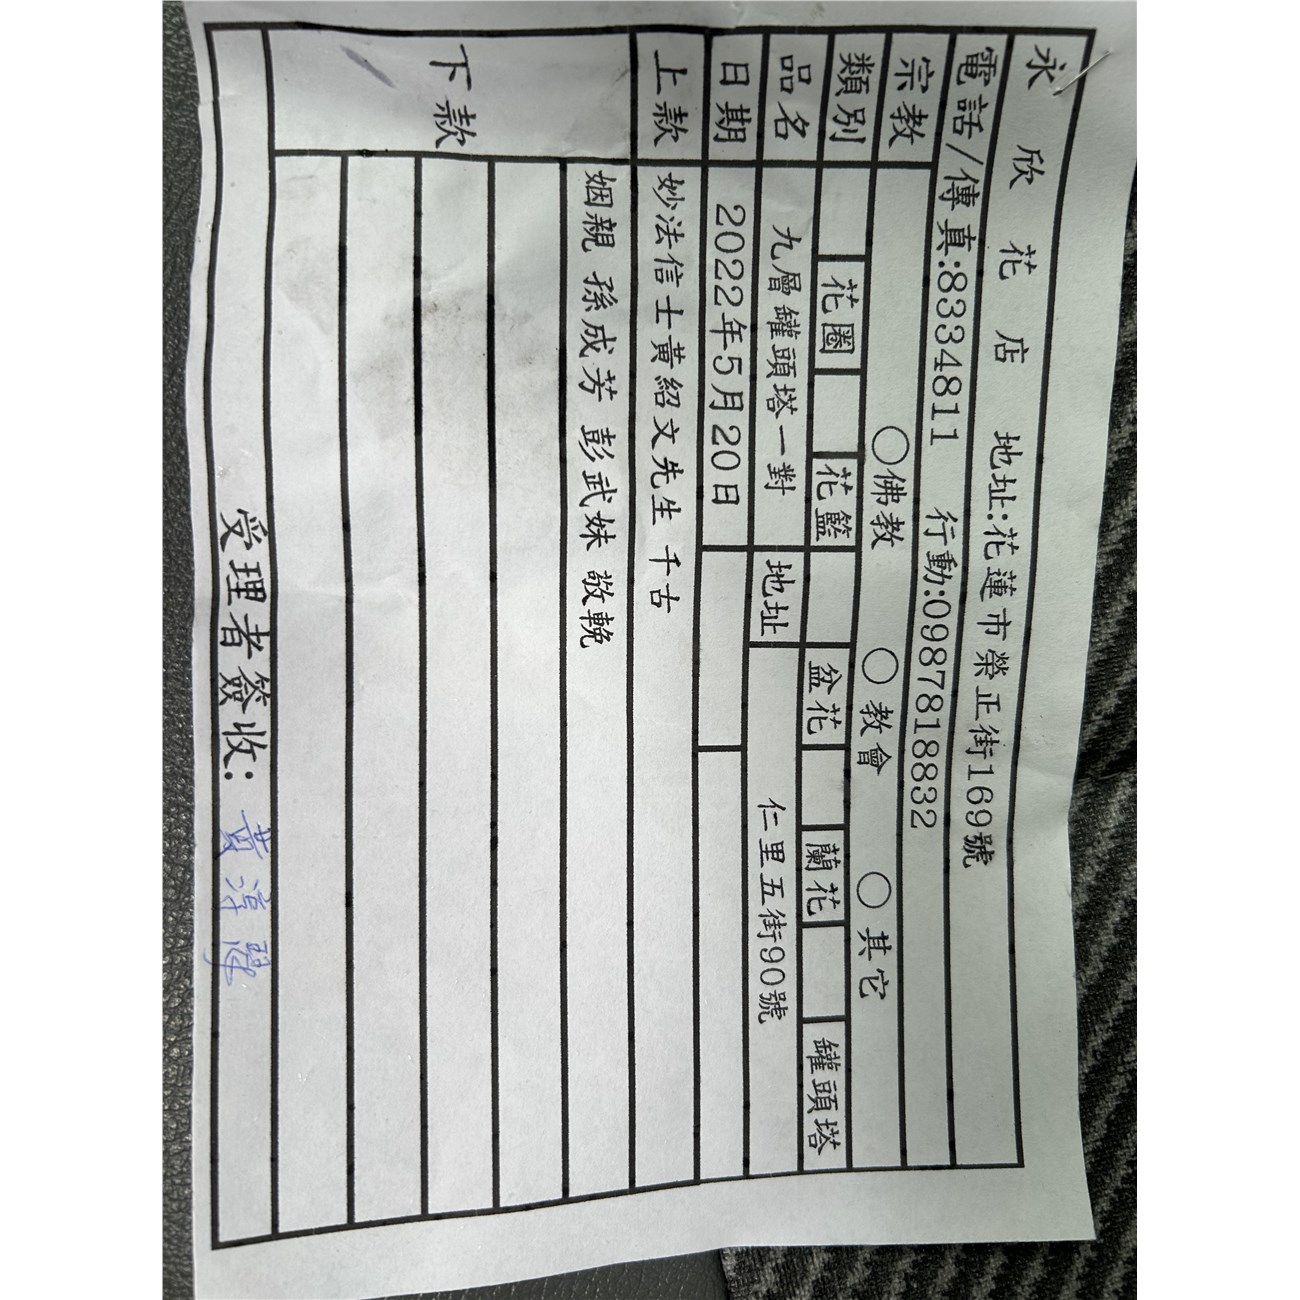 永欣花店 地址:花蓮市榮正街169號
電話/傳真:8334811 行動:0987818832
宗教 ○佛教 ○教會 ○其它
類別 花圈 花籃 盆花 蘭花 罐頭塔
品名 九層罐頭塔一對 地址 仁里五街90號
日期 2022年5月20日
上款 妙法信士黃紹文先生 千古
下款 姻親 孫成芳 彭武妹 敬輓
受理者簽收: 黃淳